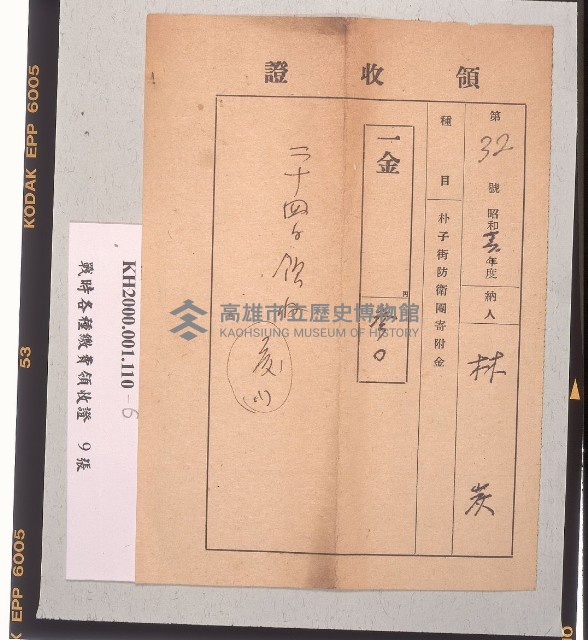 領收證
第32號 昭和 年度 納人 林 炭
種目 朴子街防衛團寄附金
一金 圓
二十四
高雄市立歷史博物館
KAOHSIUNG MUSEUM OF HISTORY
KH2000.001.110-6
戰時各種繳費領收證 9張
KODAK EPP 6005
53
EPP 6005